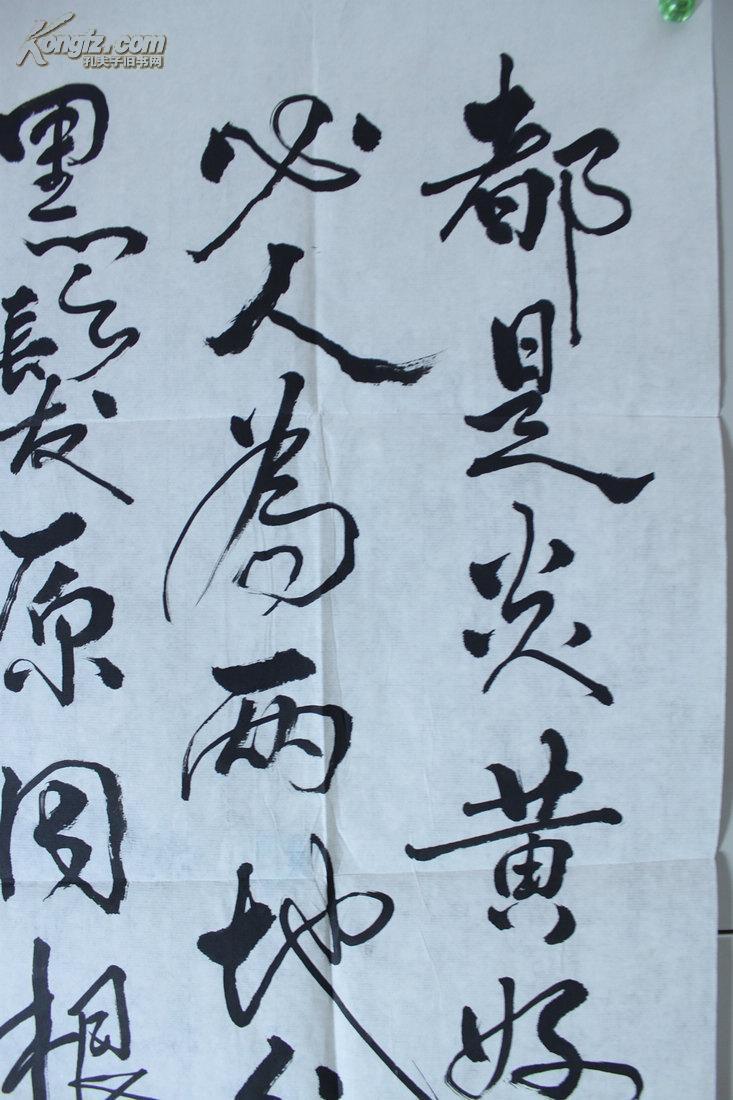 都是炎黄好
必人為两地
黑髮原同根
Kongfz.com
孔夫子旧书网